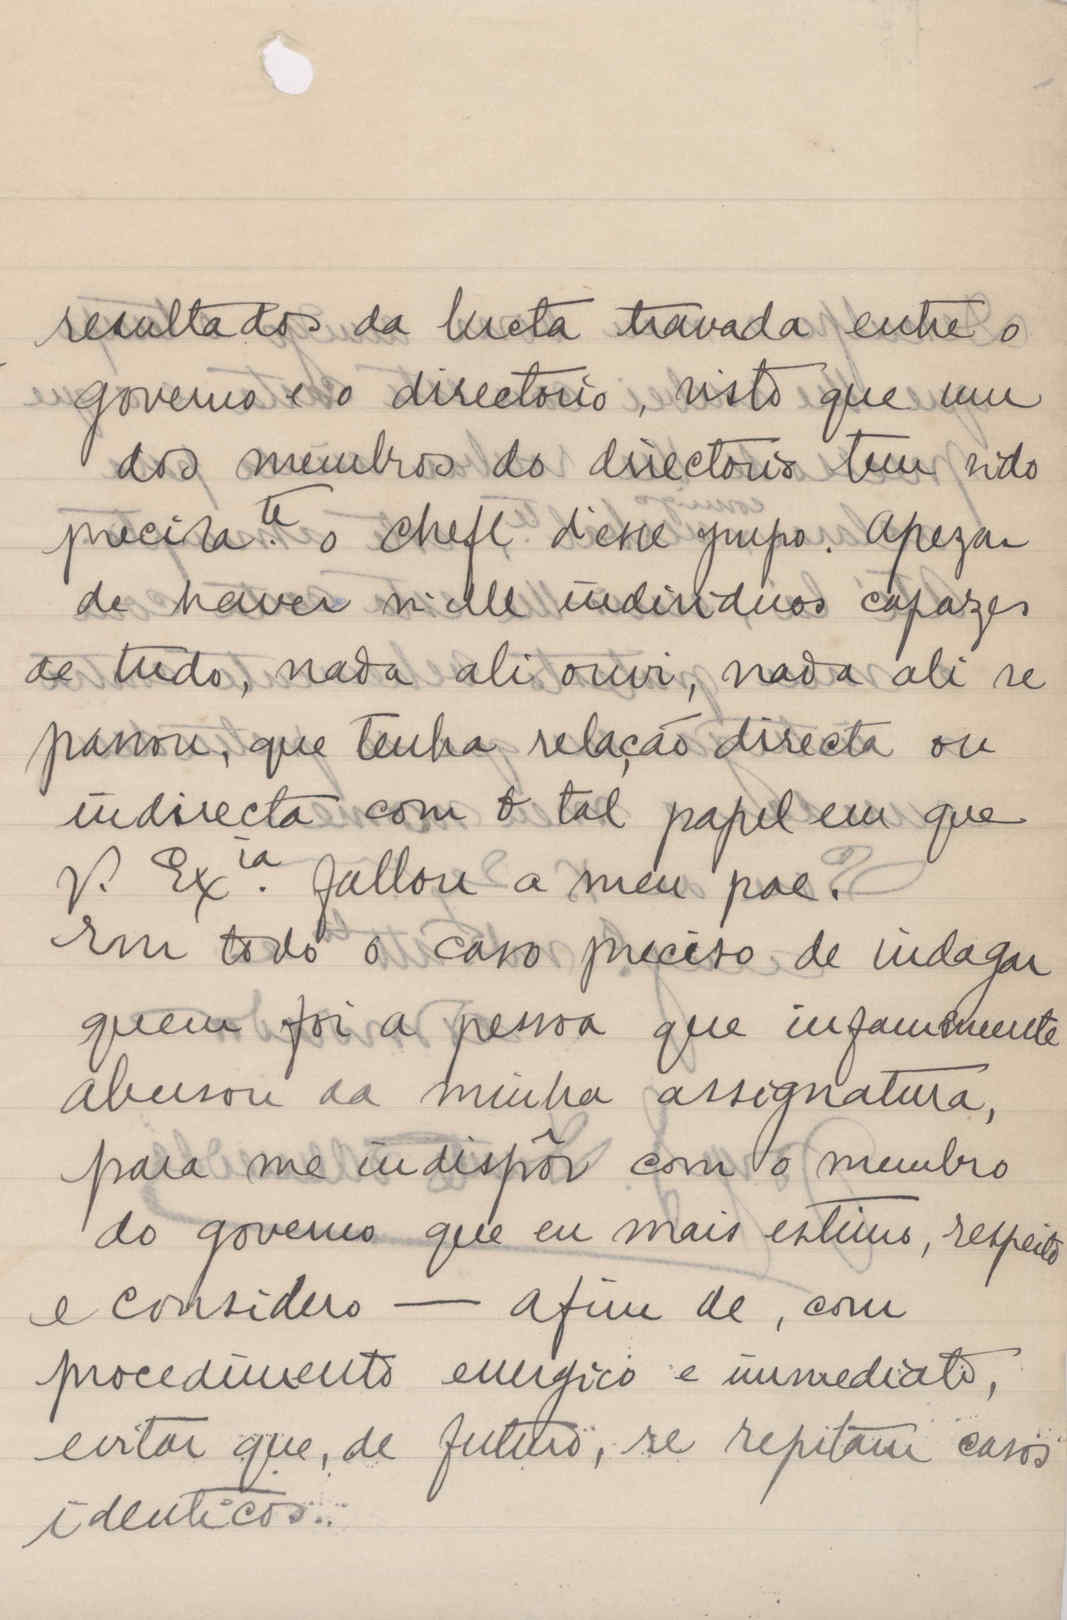 resultados da lucta travada entre o
governo e o directorio, visto que um
dos membros do directorio tem sido
precisa.te o chefe d'esse grupo. Apezar
de haver n'elle individuos capazes
de tudo, nada ali ouvi, nada ali se
passou, que tenha relação directa ou
indirecta com o tal papel em que
V. Ex.ia fallou a meu pae.
Em todo o caso preciso de indagar
quem foi a pessoa que infamemente
abusou da minha assignatura,
para me indispôr com o membro
do governo que eu mais estimo, respeito
e considero — afim de, com
procedimento energico e immediato,
evitar que, de futuro, se repitam casos
identicos..